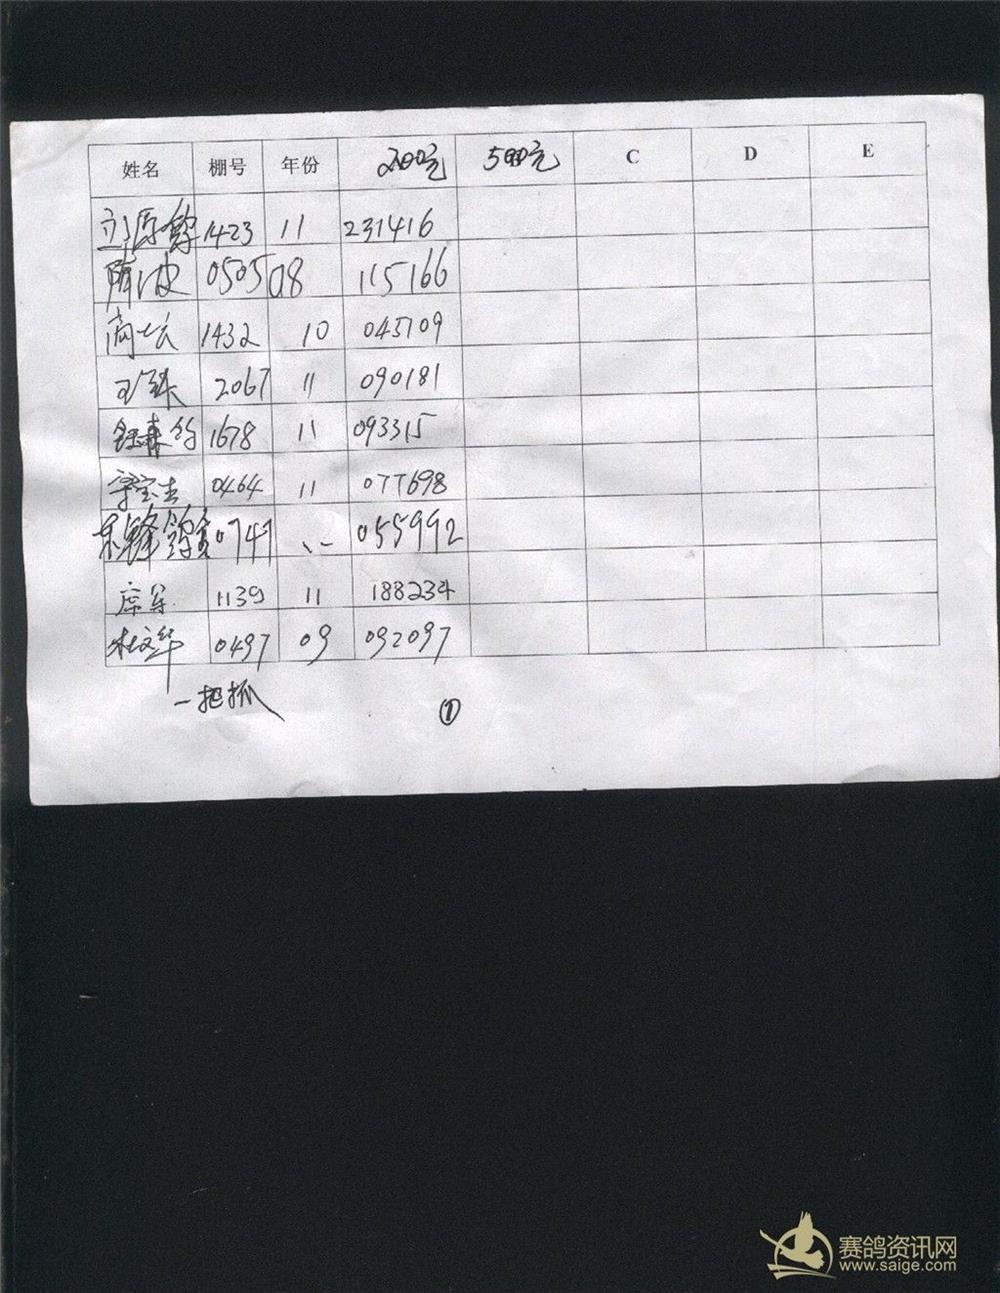 姓名 棚号 年份 200元 500元 C D E
1423 11 231416
陈波 0505 08 115166
1432 10 043109
2067 11 090181
1678 11 093315
宝吉 0464 11 077698
东锋鸽舍 0747 055992
席军 1139 11 188234
杜文华 0497 09 092097
一把抓
①
赛鸽资讯网
www.saige.com